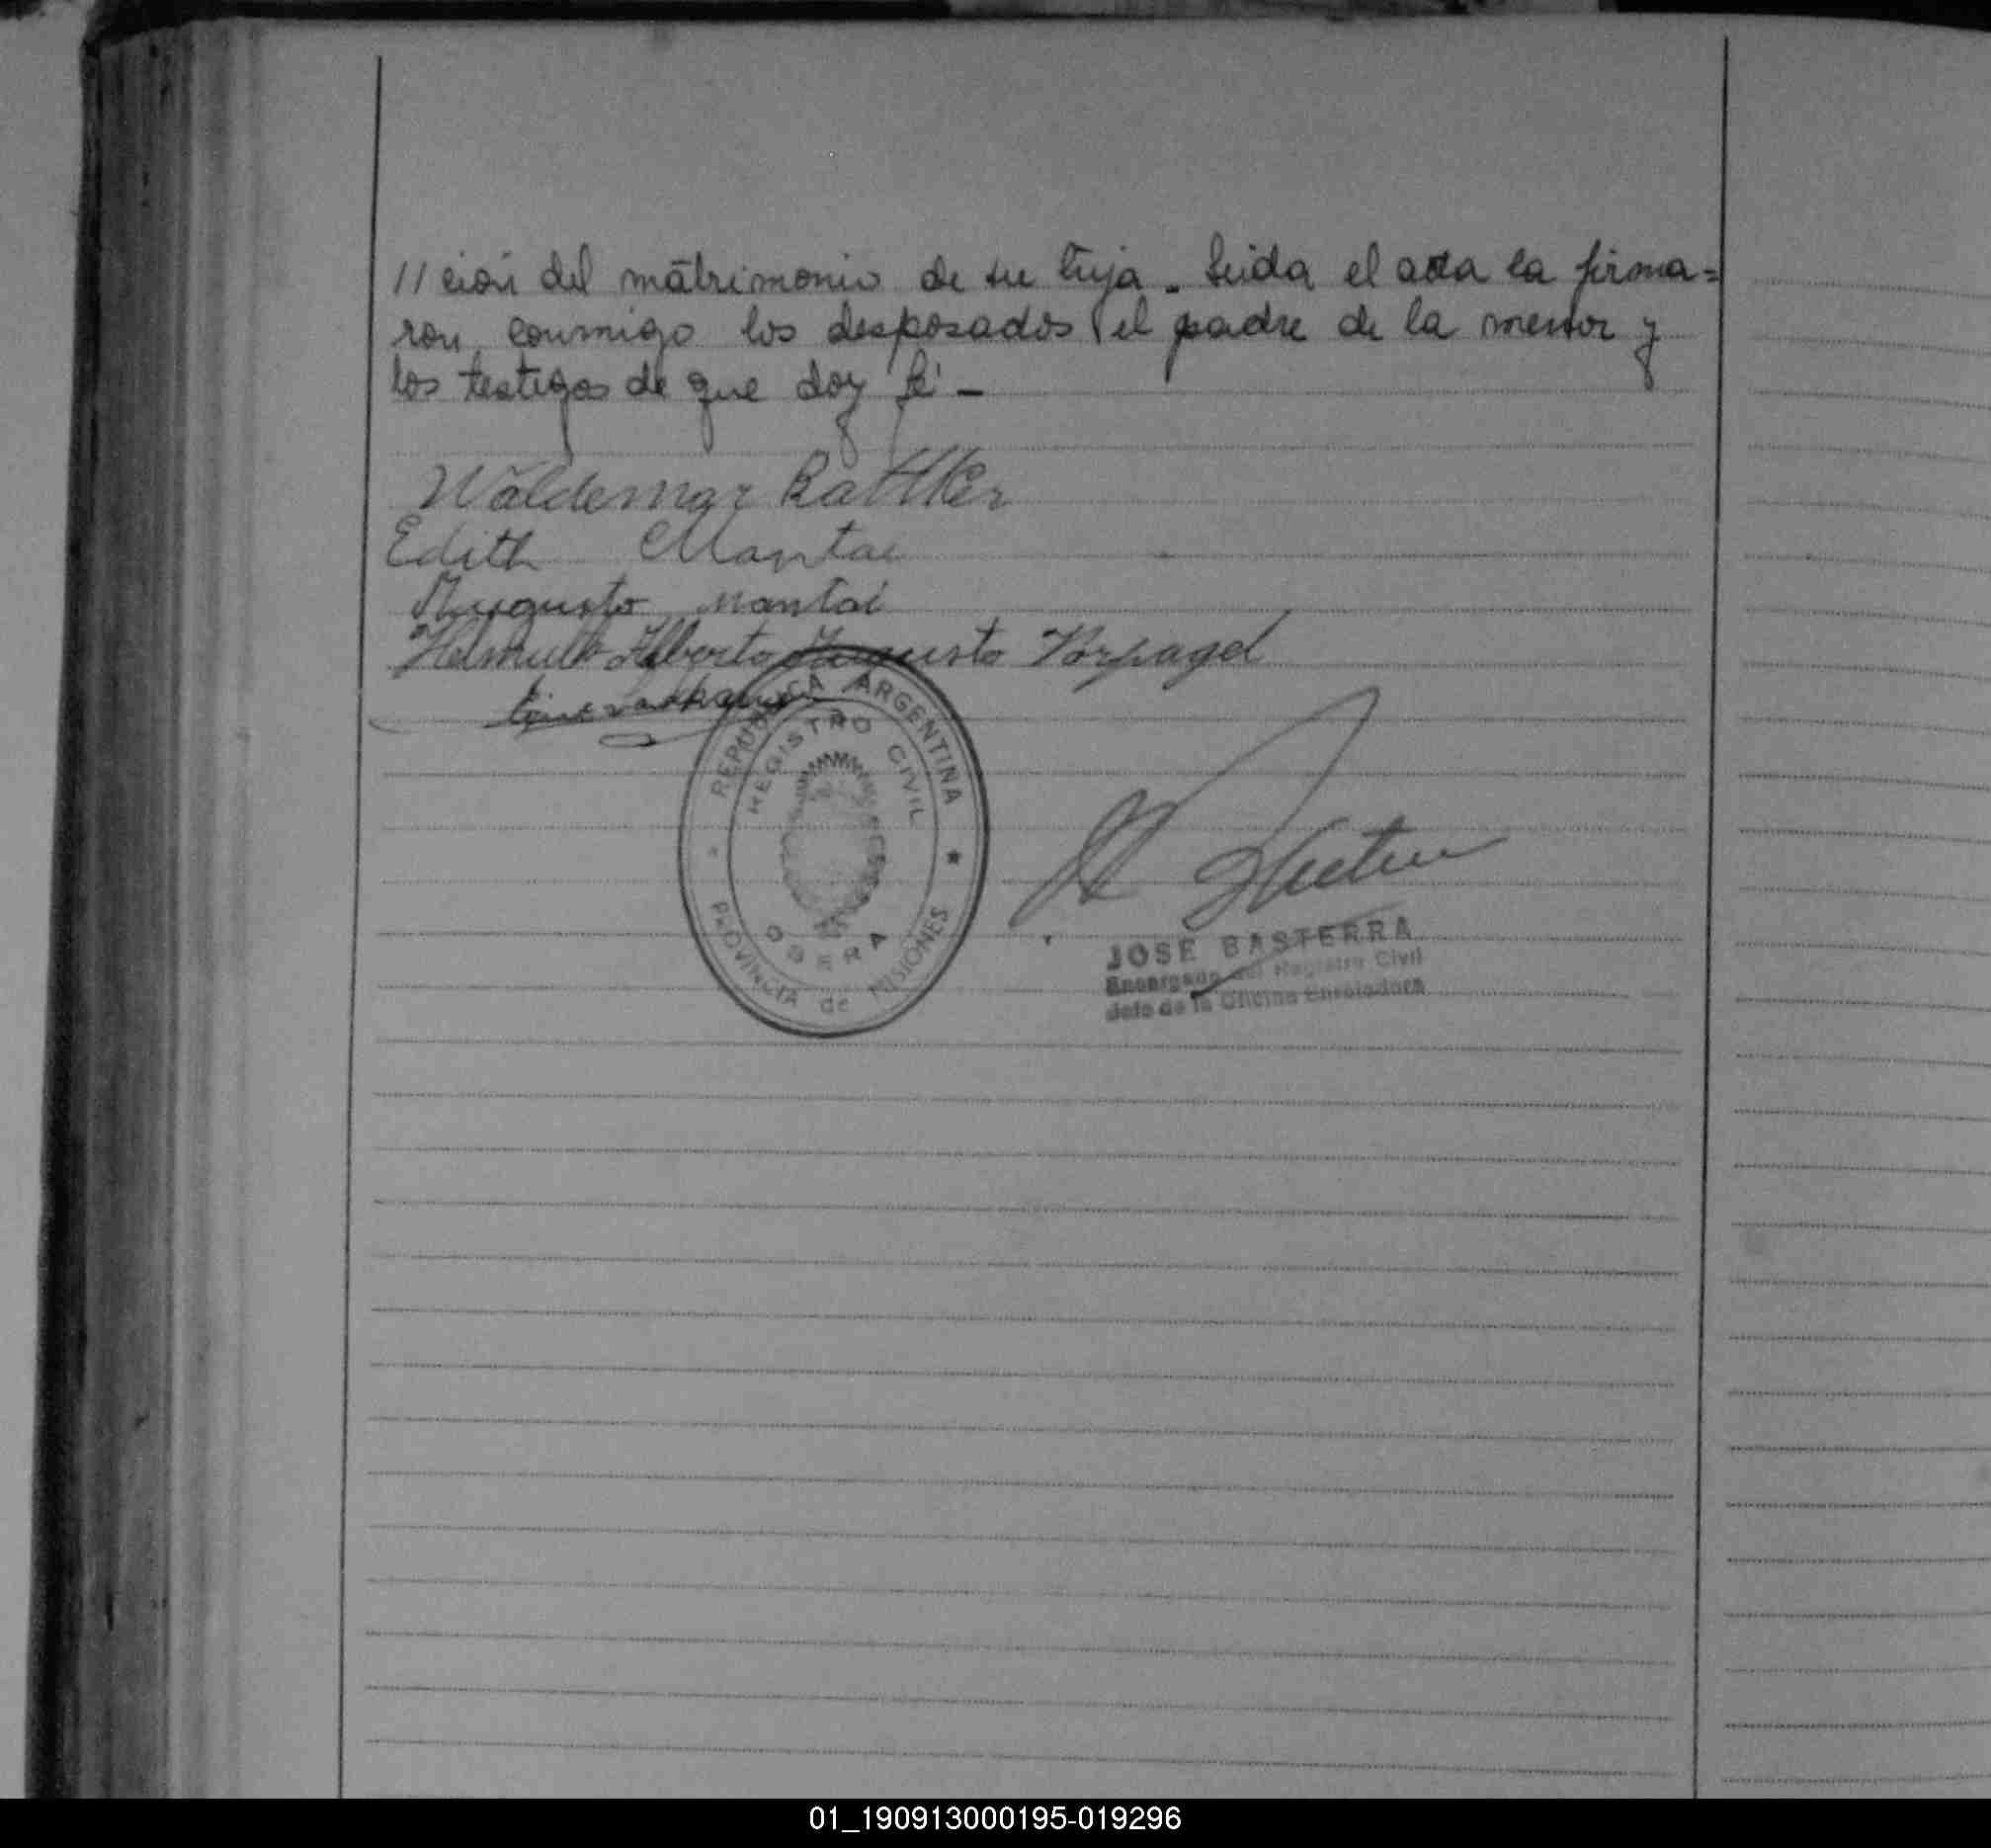 //ción del matrimonio de su hija - Leida el acta la firma=
ron conmigo los desposados el padre de la menor y
los testigos de que doy fé -
Waldemar Rattker
Edith Mantai
Augusto Mantai
Helmuth Alberto Augusto Vorpagel
REPUBLICA ARGENTINA
REGISTRO CIVIL
OBERA
PROVINCIA de MISIONES
JOSE BASTERRA
Encargado del Registro Civil
Jefe de la Oficina Enroladora
01_190913000195-019296